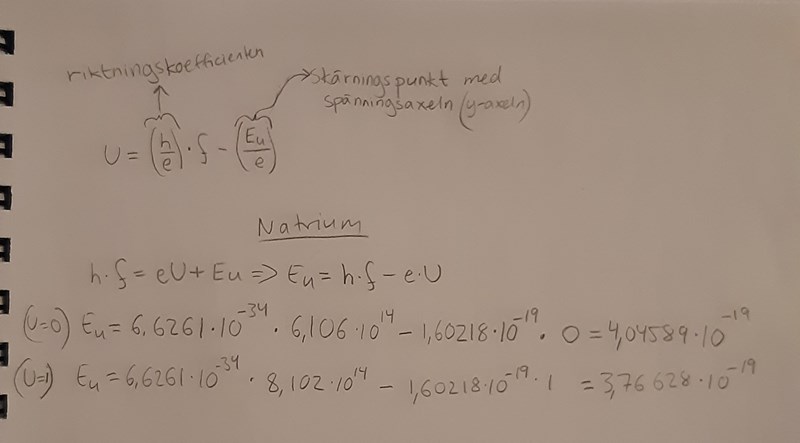 riktningskoefficienten
skärningspunkt med
spänningsaxeln (y-axeln)
U = (h/e) · f - (Eu/e)
Natrium
h·f = eU + Eu => Eu = h·f - e·U
(U=0) Eu = 6,6261·10^-34 · 6,106·10^14 - 1,60218·10^-19 · 0 = 4,04589·10^-19
(U=1) Eu = 6,6261·10^-34 · 8,102·10^14 - 1,60218·10^-19 · 1 = 3,76628·10^-19